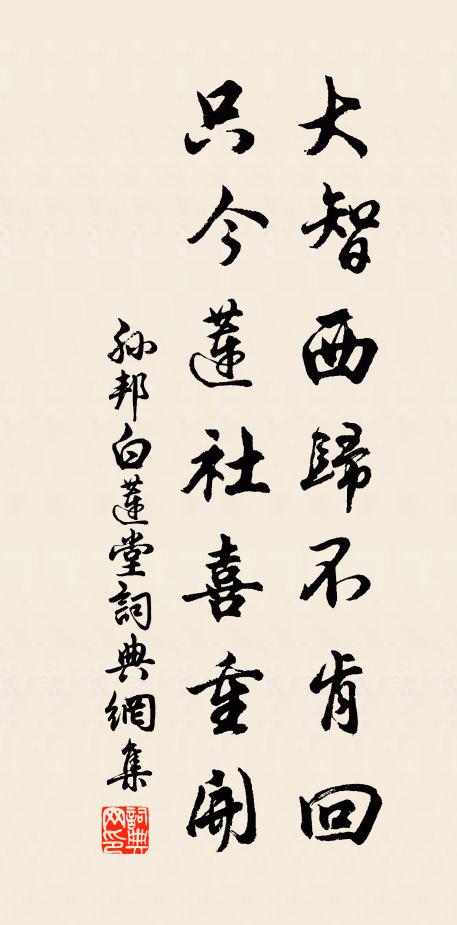 大智西歸不肯回
只今蓮社喜重開
孫邦白蓮堂詞典網集
詞典
网印